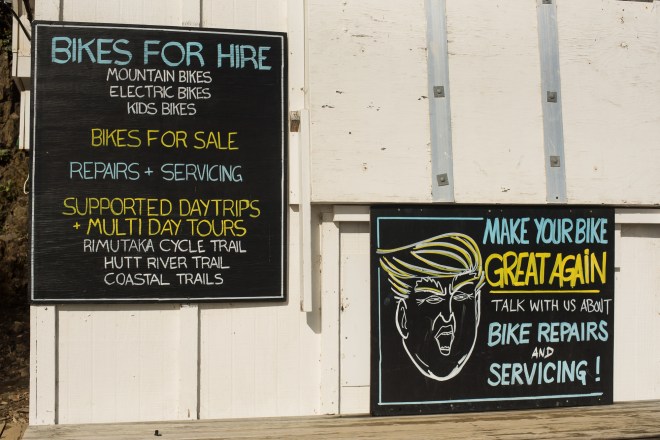 BIKES FOR HIRE
MOUNTAIN BIKES
ELECTRIC BIKES
KIDS BIKES
BIKES FOR SALE
REPAIRS + SERVICING
SUPPORTED DAYTRIPS
+ MULTI DAY TOURS
RIMUTAKA CYCLE TRAIL
HUTT RIVER TRAIL
COASTAL TRAILS
MAKE YOUR BIKE
GREAT AGAIN
TALK WITH US ABOUT
BIKE REPAIRS
AND
SERVICING !